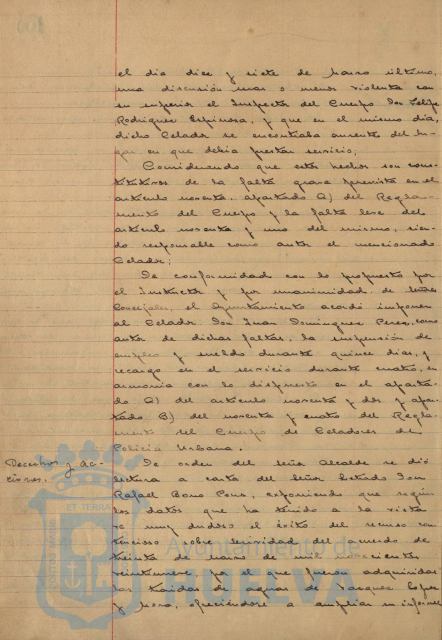 el día diez y siete de Marzo último,
una discusión mas o menos violenta con
su superior el Inspector del Cuerpo Don Felipe
Rodriguez Espinosa, y que en el mismo día,
dicho Celador se encontraba ausente del lu-
gar en que debia prestar servicio;
Considerando que estos hechos son cons-
titutivos de la falta grave prevista en el
artículo noventa, apartado a) del Regla-
mento del Cuerpo y la falta leve del
artículo noventa y uno del mismo, sien-
do responsable como autor el mencionado
Celador;
De conformidad con lo propuesto por
el Instructor y por unanimidad de Señores
Concejales, el Ayuntamiento acordó imponer
al Celador Don Juan Dominguez Perez, como
autor de dichas faltas, la suspensión de
empleo y sueldo durante quince dias, y
recargo en el servicio durante cuatro, en
armonia con lo dispuesto en el aparta-
do a) del artículo noventa y dos y apar-
tado B) del noventa y cuatro del Regla-
mento del Cuerpo de Celadores de
Policia Urbana.
Derechos y ac-
ciones.
De orden del Señor Alcalde se dió
lectura a carta del Señor Letrado Don
Rafael Bono Pons, exponiendo que según
los datos que ha tenido a la vista
es muy dudoso el éxito del recurso con-
tencioso sobre lesividad del acuerdo de
treinta de Marzo de mil novecientos
veintinueve por el que fueron adquiridas
las traidas de aguas de Vazquez Lopez
y Mora, ofreciendose a ampliar su informe
ET TERRA
Ayuntamiento de
HUELVA